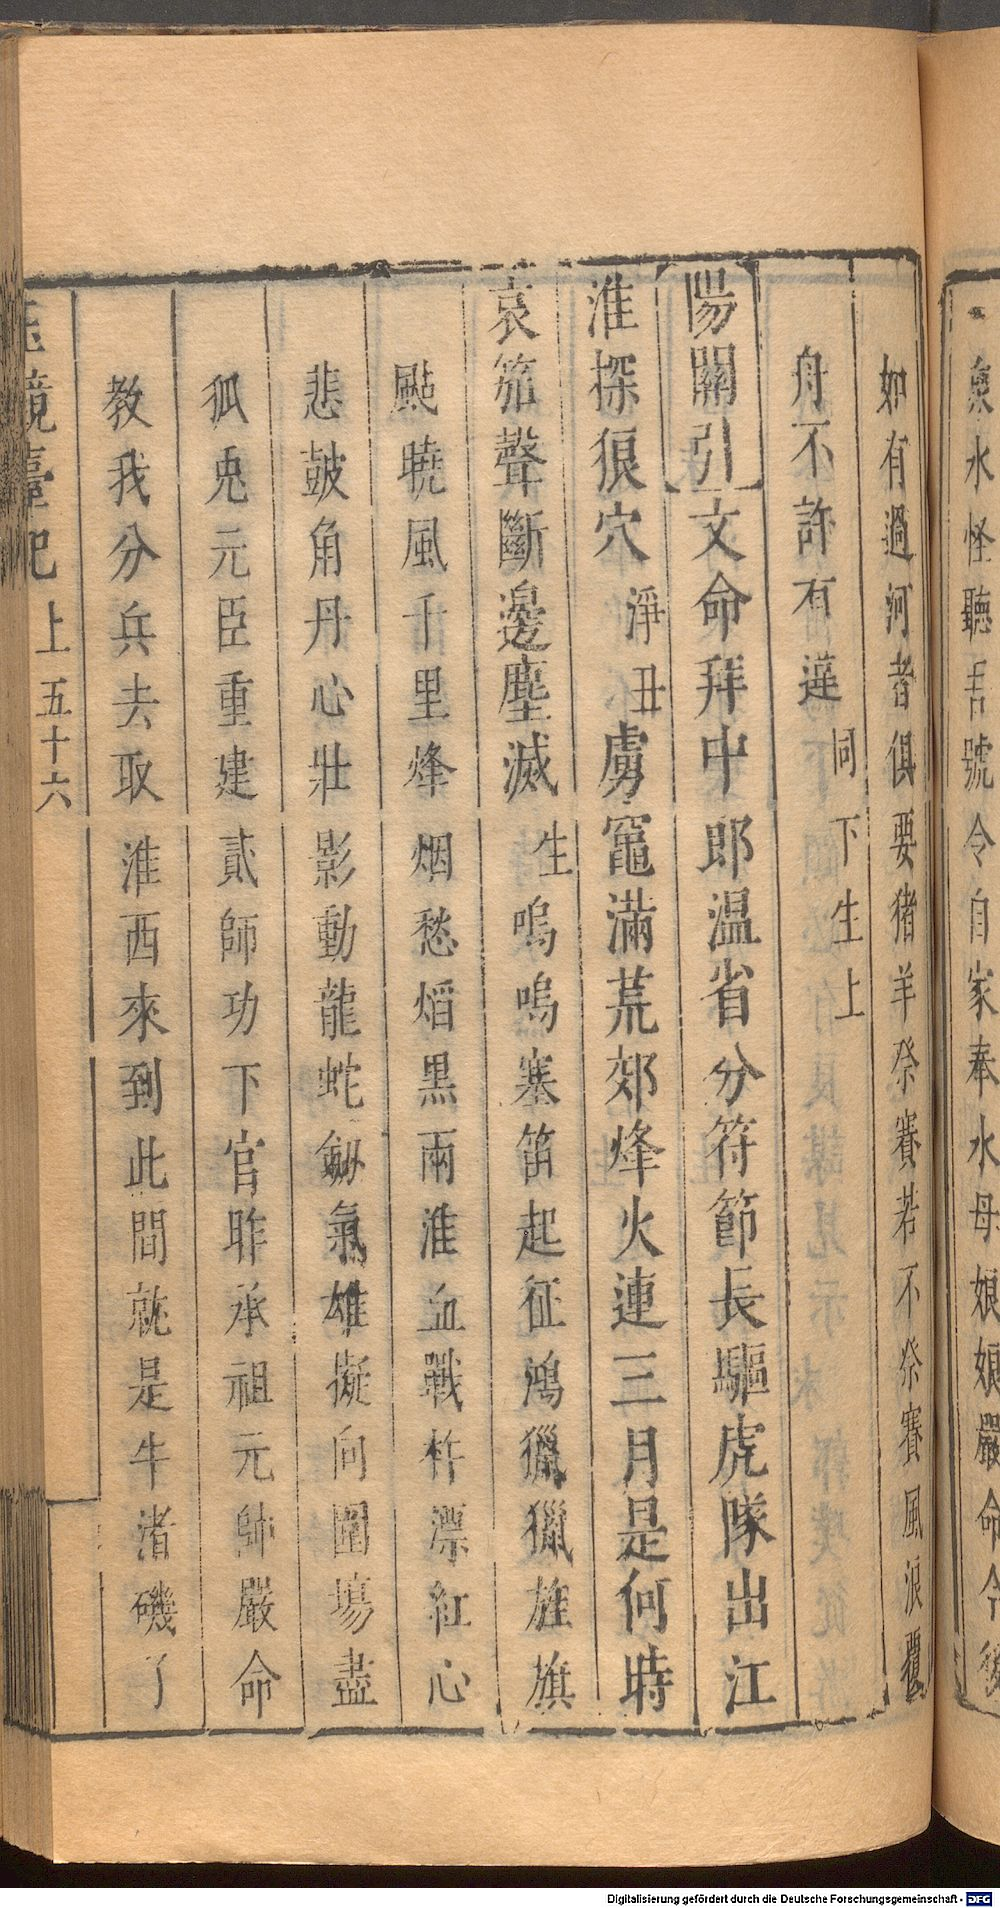 衆水怪聽吾號令自家奉水母娘娘嚴命今後
如有過河者俱要猪羊祭賽若不祭賽風浪覆
舟不許有違 同下生上
陽關引 文命拜中郎温省分符節長驅虎隊出江
淮探狼穴 淨丑 虜竈滿荒郊烽火連三月是何時
哀笳聲斷邊塵滅 生 嗚嗚塞笛起征鴻獵獵旌旗
颭曉風千里烽烟愁熖黑兩淮血戰杵漂紅心
悲鼓角丹心壯影動龍蛇劔氣雄擬向圍塲盡
狐兎元臣重建貳師功下官昨承祖元帥嚴命
教我分兵去取淮西來到此間就是牛渚磯了
玉鏡臺記 上 五十六
Digitalisierung gefördert durch die Deutsche Forschungsgemeinschaft - DFG